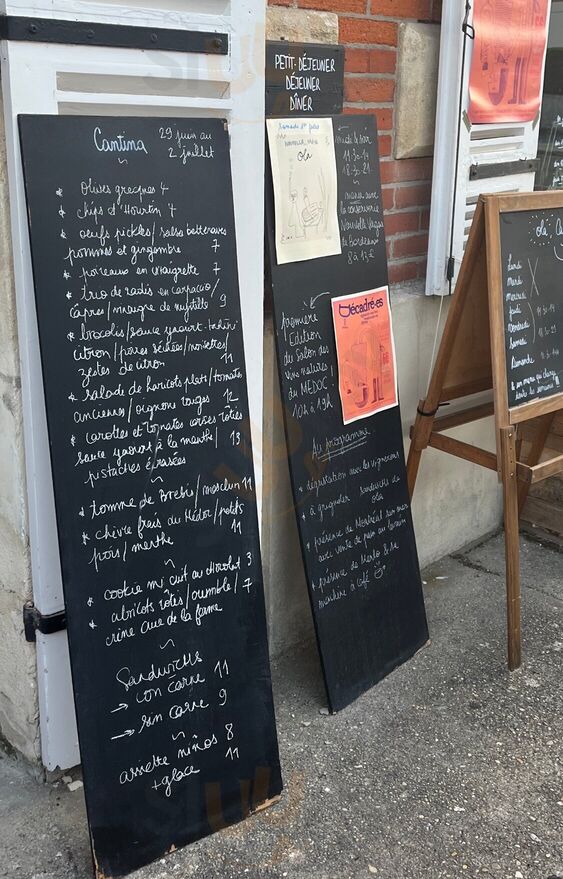 Cantina
29 juin au
2 juillet
* olives grecques 4
* chips d'Hourtin 7
* oeufs pickles/salsa betteraves
pommes et gingembre 7
* poireaux en vinaigrette 7
* trio de radis en carpaccio/
câpres/vinaigre de myrtille 9
* brocolis/sauce yaourt-tahini
citron/poires séchées/noisettes/
zestes de citron 11
* salade de haricots plats/tomates
anciennes/oignons rouges 12
* carottes et tomates cerises rôties
sauce yaourt à la menthe/ 13
pistaches écrasées
* tomme de Brebis/mesclun 11
* chèvre frais du Médoc/petits
pois/menthe 11
* cookie mi cuit au chocolat 3
* abricots rôtis/crumble/ 7
crème crue de la ferme
Sandwichs
→ con carne 11
→ sin carne 9
assiette niños 8
+ glace 11
PETIT-DÉJEUNER
DÉJEUNER
DÎNER
samedi 1er juillet
Ola
11:30-14
18:30-21
menu avec
la conserverie
Nouvelle Vague
de Bordeaux
8 à 13€
première
Edition
du Salon des
vins natures
du MEDOC!
10h à 19h
Décadré·es
Au programme
* dégustation avec les vignerons
* à grignoter sandwichs de
Ola
* présence de Montréal sur mer
avec vente de pain au levain
* présence de Marlo & sa
machine à café
Olà
lundi
mardi
mercredi
jeudi
samedi
Dimanche